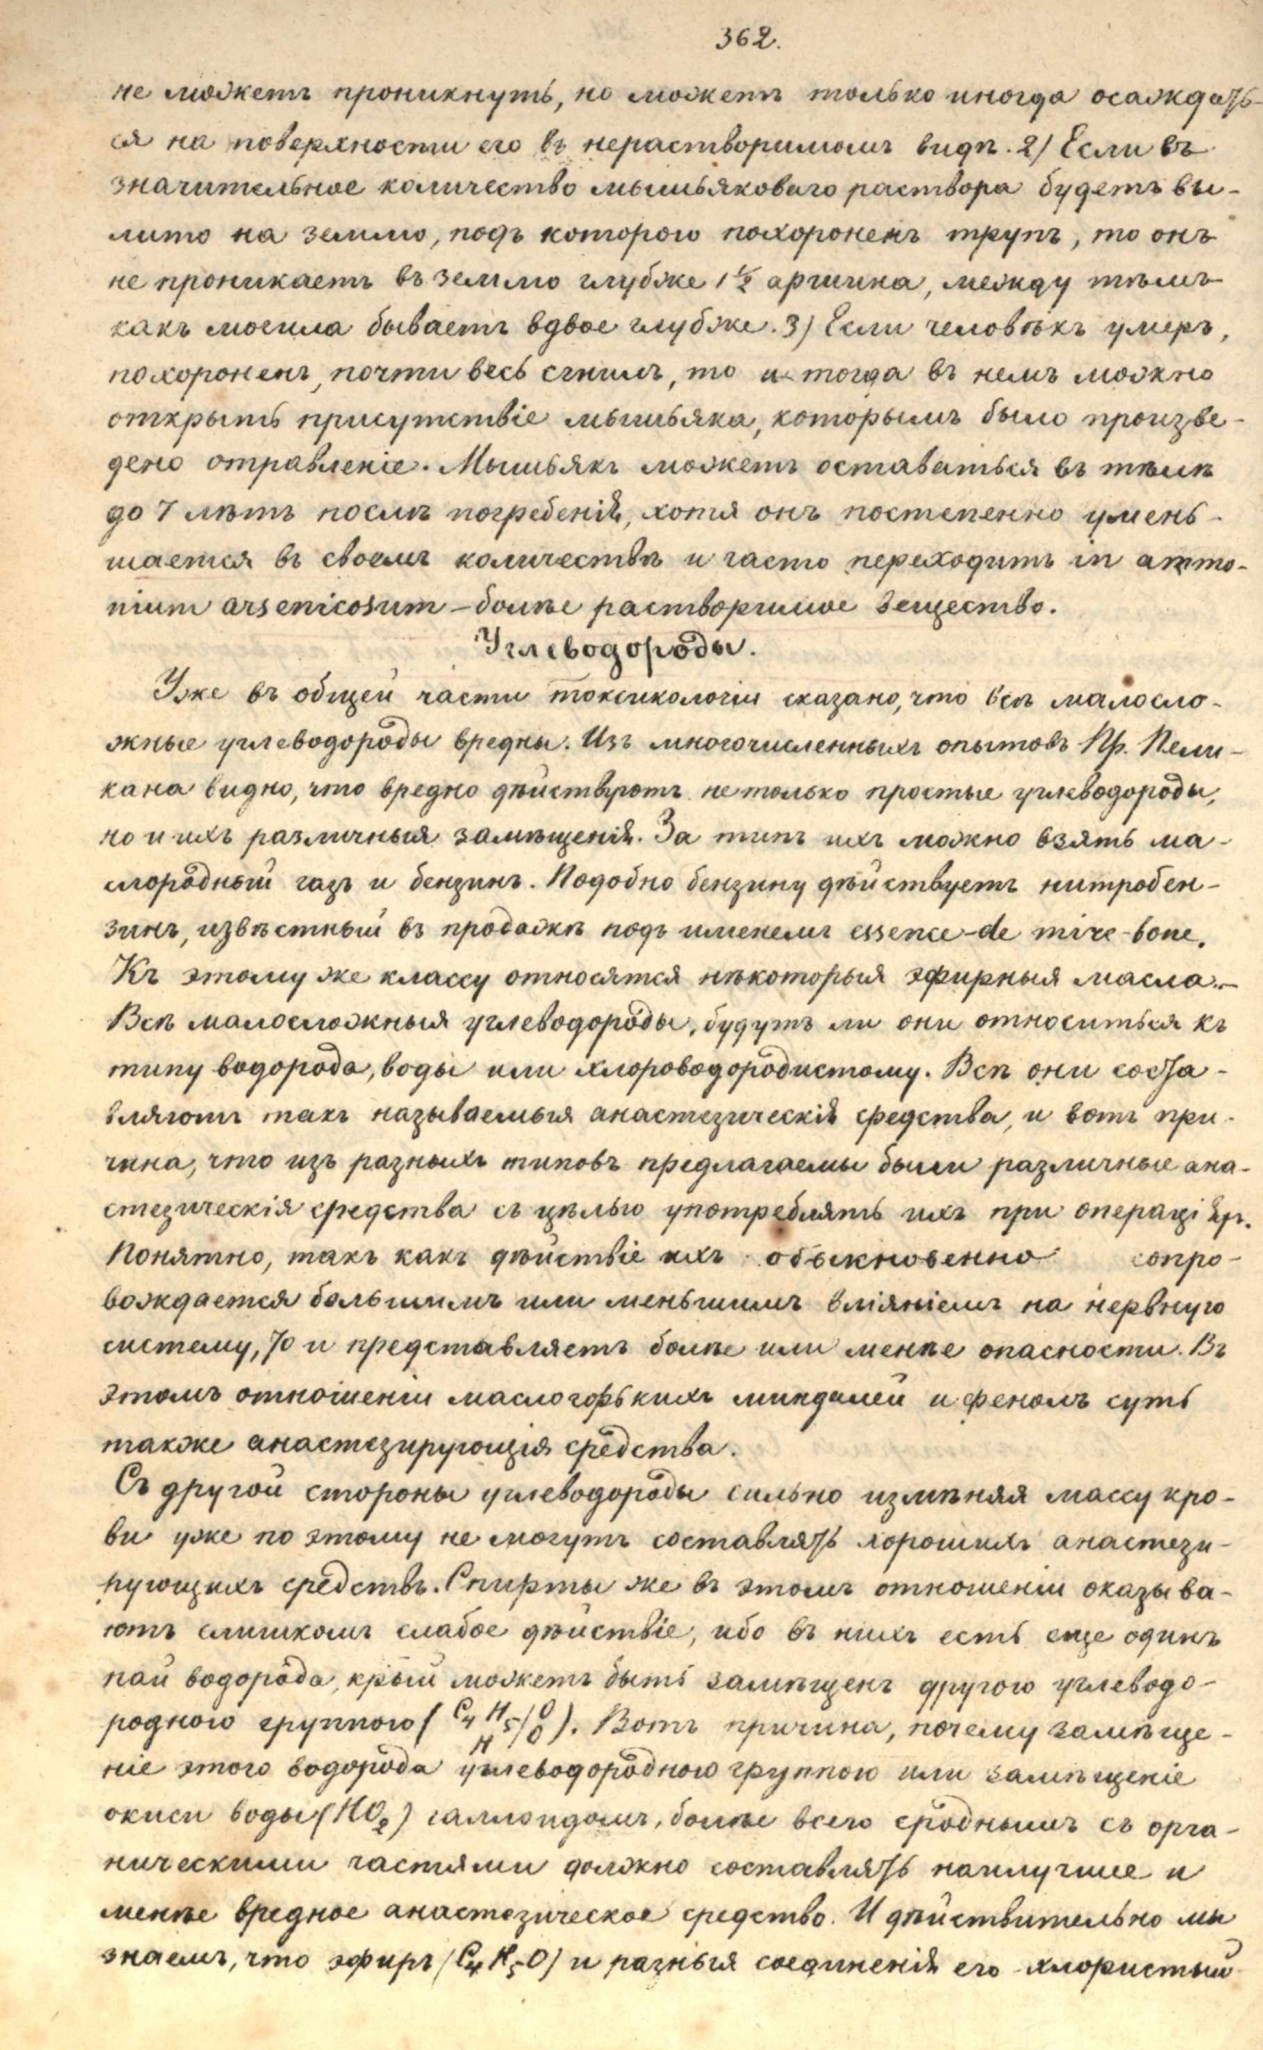 362.
не можетъ проникнуть, но можетъ только иногда осаждать-
ся на поверхности его въ нерастворимомъ видѣ. 2) Если въ
значительное количество мышьяковаго раствора будетъ вы-
лито на землю, подъ которою похороненъ трупъ, то онъ
не проникаетъ въ землю глубже 1 1/2 аршина, между тѣмъ
какъ могила бываетъ вдвое глубже. 3) Если человѣкъ умеръ,
похороненъ, почти весь сгнилъ, то и тогда въ немъ можно
открыть присутствіе мышьяка, которымъ было произве-
дено отравленіе. Мышьякъ можетъ оставаться въ тѣлѣ
до 7 лѣтъ послѣ погребенія, хотя онъ постепенно умень-
шается въ своемъ количествѣ и часто переходитъ in ammo-
nium arsenicosum – болѣе растворимое вещество.
Углеводороды.
Уже въ общей части токсикологіи сказано, что всѣ малосло-
жные углеводороды вредны. Изъ многочисленныхъ опытовъ Пр. Пели-
кана видно, что вредно дѣйствуютъ не только простые углеводороды,
но и ихъ различныя замѣщенія. За типъ ихъ можно взять ма-
слородный газъ и бензинъ. Подобно бензину дѣйствуетъ нитробен-
зинъ, извѣстный въ продажѣ подъ именемъ essence-de mire-bone.
Къ этому же классу относятся нѣкоторыя эфирныя масла.–
Всѣ малосложныя углеводороды, будутъ ли они относиться къ
типу водорода, воды или хлороводородистому. Всѣ они соста-
вляютъ такъ называемыя анастезическія средства, и вотъ при-
чина, что изъ разныхъ типовъ предлагаемы были различные ана-
стезическія средства съ цѣлью употреблять ихъ при операціяхъ.
Понятно, такъ какъ дѣйствіе ихъ обыкновенно сопро-
вождается большимъ или меньшимъ вліяніемъ на нервную
систему, то и представляетъ болѣе или менѣе опасности. Въ
этомъ отношеніи масло горькихъ миндалей и фенолъ суть
также анастезирующія средства.
Съ другой стороны углеводороды сильно измѣняя массу кро-
ви уже по этому не могутъ составлять хорошихъ анастези-
рующихъ средствъ. Спирты же въ этомъ отношеніи оказыва-
ютъ слишкомъ слабое дѣйствіе, ибо въ нихъ есть еще одинъ
пай водорода, крый можетъ быть замѣщенъ другою углеводо-
родною группою (C4 H5/O
H/O). Вотъ причина, почему замѣще-
ніе этого водорода углеводородною группою или замѣщеніе
окиси воды (HO2) галлоидомъ, болѣе всего сроднымъ съ орга-
ническими частями должно составлять наилучшее и
менѣе вредное анастезическое средство. И дѣйствительно мы
знаемъ, что эфиръ (C4H5O) и разныя соединенія его - хлористый